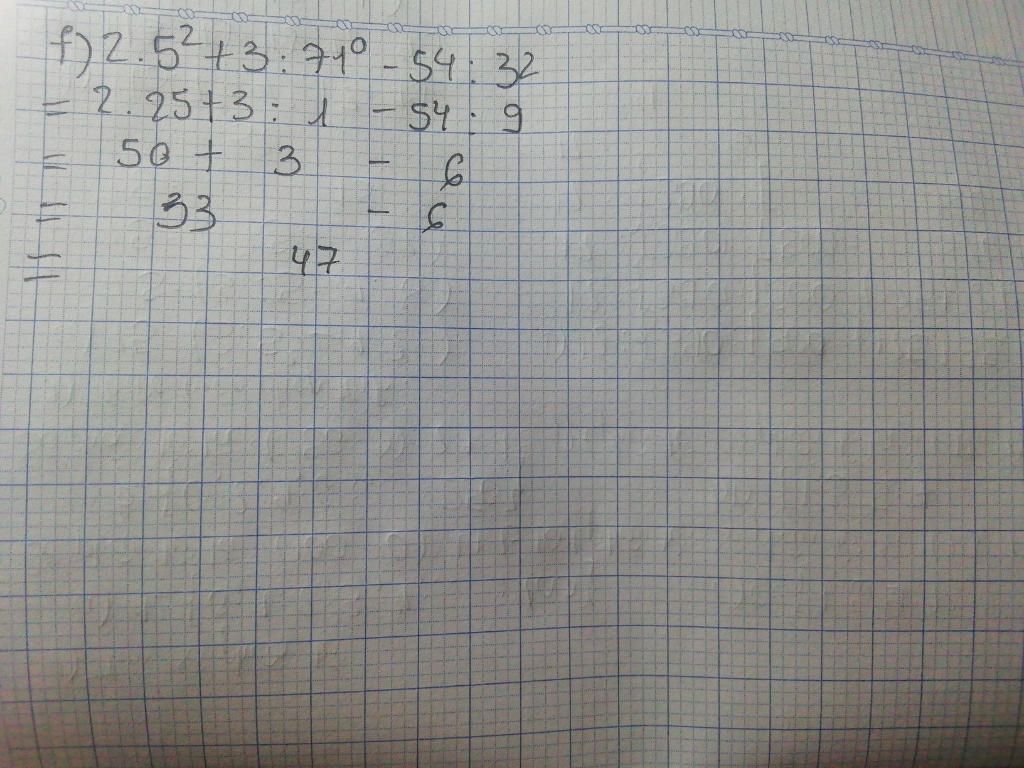 f) 2 . 5² + 3 : 71⁰ - 54 : 32
= 2 . 25 + 3 : 1 - 54 : 9
= 50 + 3 - 6
= 33 - 6
= 47